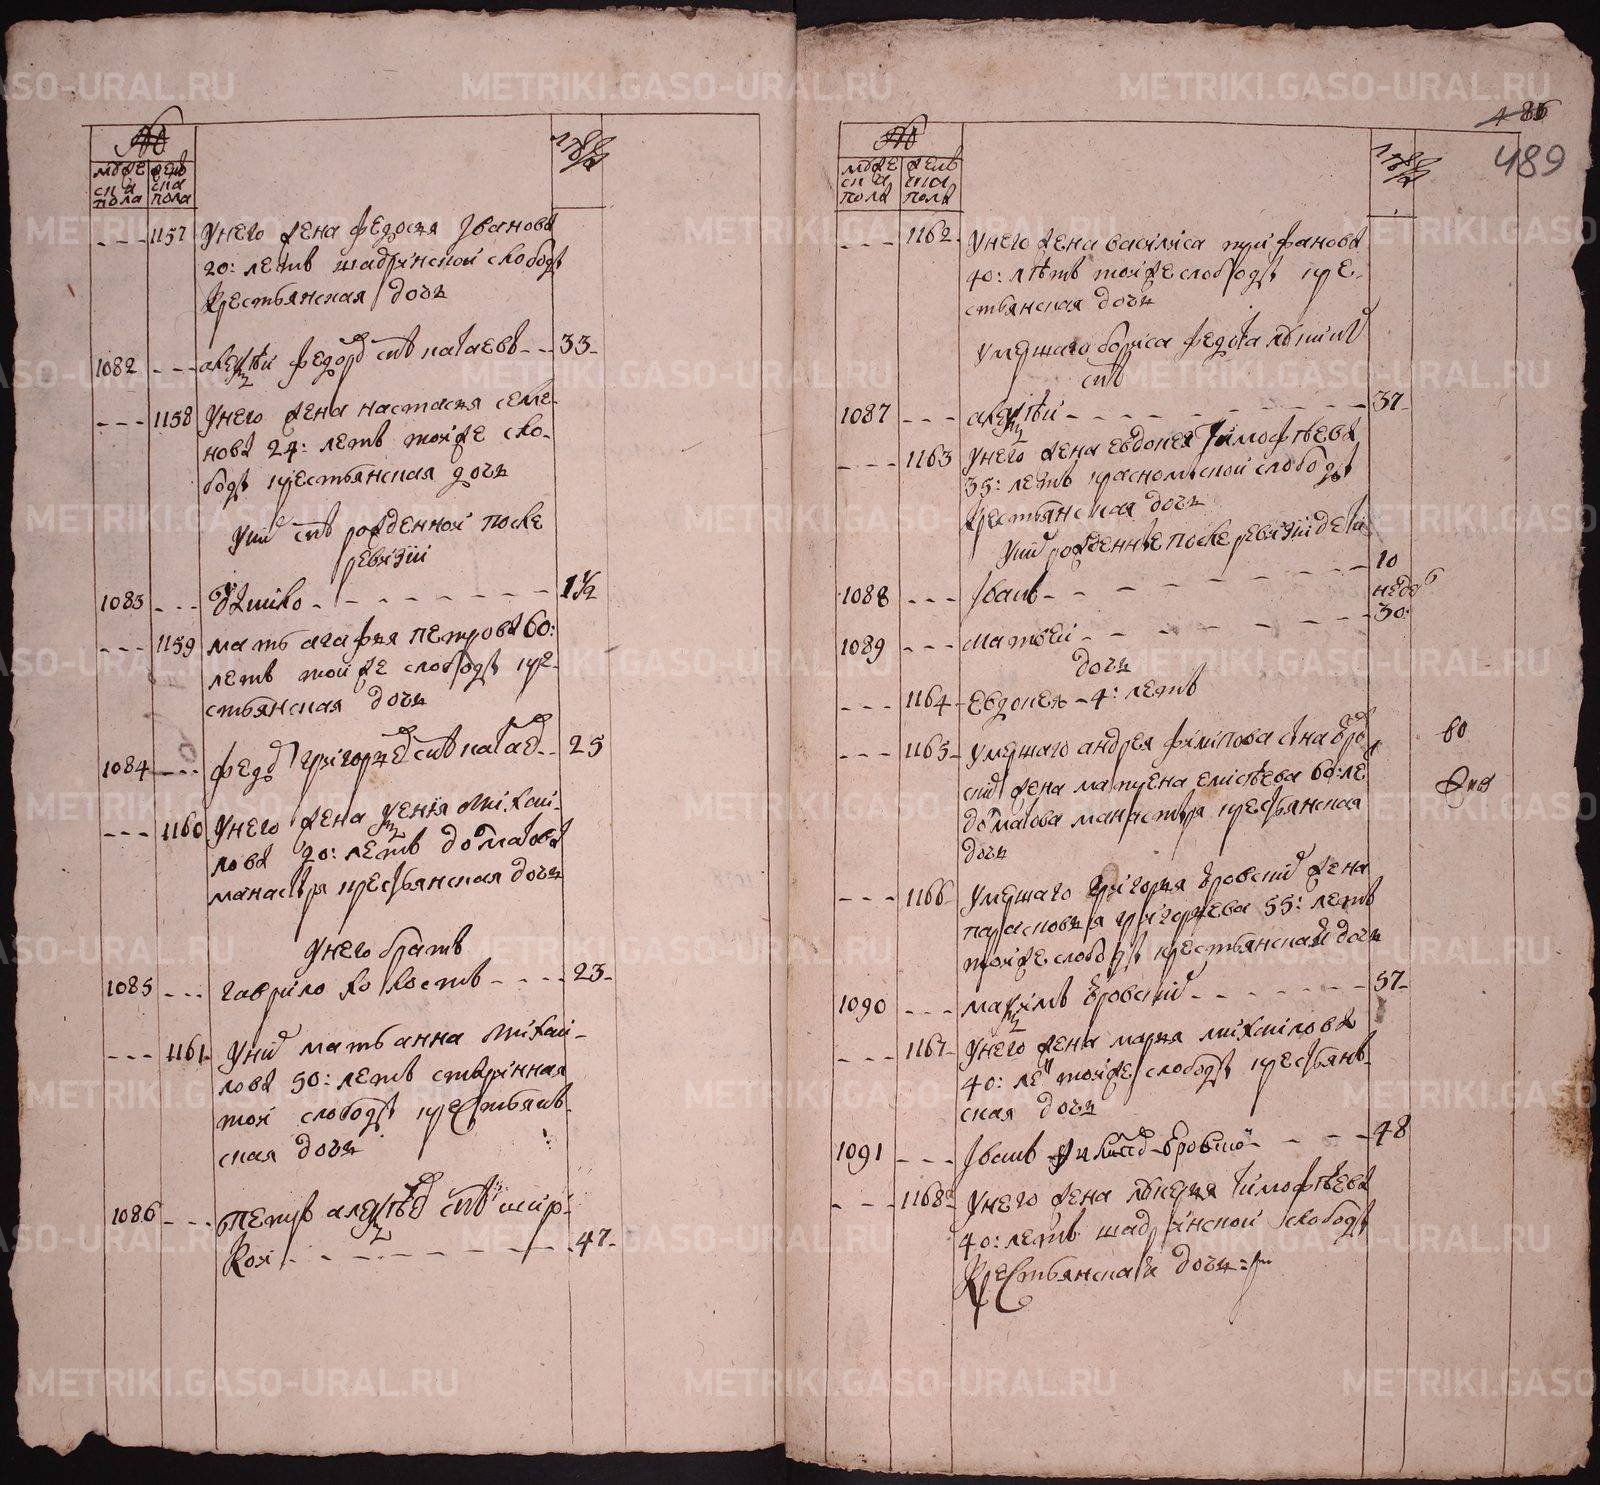 №
мужеска пола
женска пола
лета
1157 У него жена федосья Iванова
20: летъ шадринской слободы
крестьянская дочь
1082 алексѣй федоровъ снъ катаевъ 33
1158 У него жена настасья семе-
нова 24: летъ тояже сло-
боды крестьянская дочь
У них снъ рожденной после
ревизiи
1083 1½
1159 мать агафья петрова 60:
летъ тояже слободы кре-
стьянская дочь
1084 федор григорьев снъ катаев 25
1160 У него жена ксенiя Михаи-
лова 20: летъ долматова
манастыря крестьянская дочь
У него братъ
1085 гаврило холостъ 23
1161 У них мать анна Михаи-
лова 50: летъ
тоя слободы крестьян-
ская дочь
1086 Петръ алексѣев снъ широ-
кой 47
486
489
№
мужеска пола
женска пола
лета
1162 У него жена василиса труфанова
40: лѣтъ тояже слободы кре-
стьянская дочь
У умершаго бориса федотова
снъ
1087 алексѣй 37
1163 У него жена евдокея Тимофѣева
35: летъ красномыской слободы
крестьянская дочь
У них рожденные после ревизiи дети
1088 Iванъ 10
недель
1089 Матвей 30
дочь
1164 Евдокея 4: летъ
1165 Умершаго андрея филипова сына
жена матрена елисѣева 60: ле
долматова манастыря крестьянская
дочь
60
1166 Умершаго григорья Боровских жена
парасковья григорьева 55: летъ
тояже слободы крестьянская дочь
1090 максимъ Боровских 57
1167 У него жена марья михаилова
40: ле тояже слободы крестьян-
ская дочь
1091 Iванъ 48
1168 У него жена лукерья Тимофѣева
40: летъ шадринской слободы
Крестьянская дочь